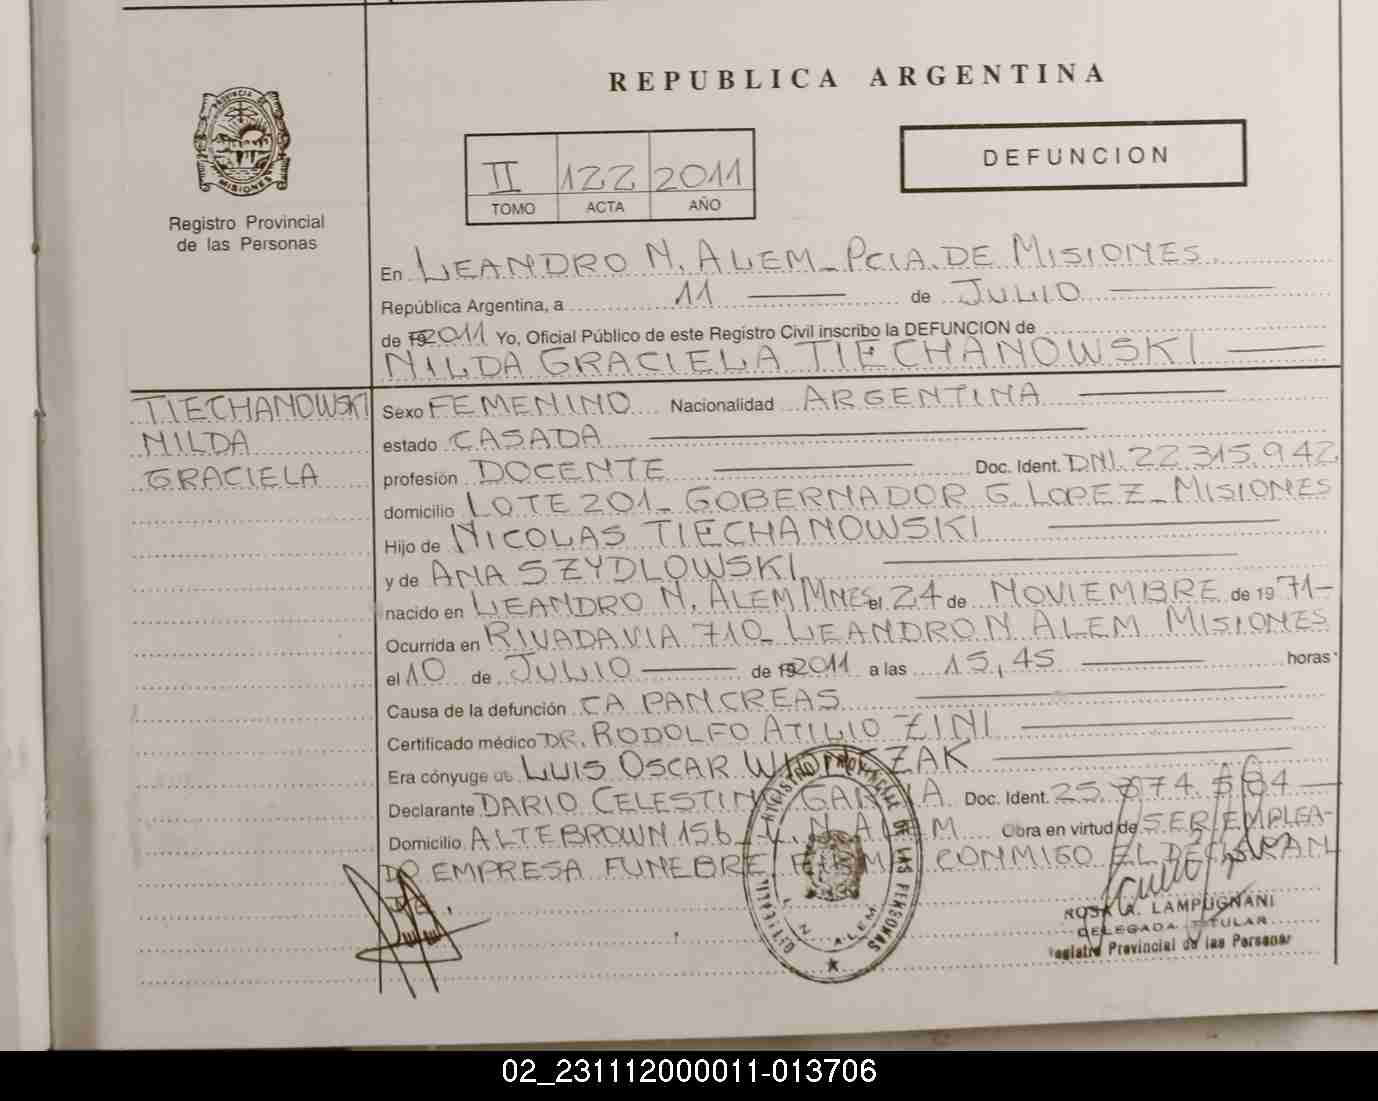 REPUBLICA ARGENTINA
PROVINCIA DE
MISIONES
Registro Provincial
de las Personas
II 122 2011
TOMO ACTA AÑO
DEFUNCION
En LEANDRO N. ALEM - PCIA. DE MISIONES
República Argentina, a 11 de JULIO
de 2011 Yo, Oficial Público de este Registro Civil inscribo la DEFUNCION de
NILDA GRACIELA TIECHANOWSKI
TIECHANOWSKI
NILDA
GRACIELA
Sexo FEMENINO Nacionalidad ARGENTINA
estado CASADA
profesión DOCENTE Doc. Ident. DNI. 22.315.942
domicilio LOTE 201 - GOBERNADOR G. LOPEZ - MISIONES
Hijo de NICOLAS TIECHANOWSKI
y de ANA SZYDLOWSKI
nacido en LEANDRO N. ALEM MNES el 24 de NOVIEMBRE de 1971-
Ocurrida en RIVADAVIA 710- LEANDRO N ALEM MISIONES
el 10 de JULIO de 2011 a las 15,45 horas
Causa de la defunción CA PANCREAS
Certificado médico DR. RODOLFO ATILIO ZINI
Era cónyuge de LUIS OSCAR
Declarante DARIO CELESTINO Doc. Ident. 25.
Domicilio ALTE BROWN 156 - L. N. ALEM Obra en virtud de SER EMPLEA-
DO EMPRESA FUNEBRE. CONMIGO EL DECLARAN
TE.
REGISTRO PROVINCIAL DE LAS PERSONAS
L. N. ALEM
ROSA A. LAMPUGNANI
DELEGADA TITULAR
Registro Provincial de las Personas
02_231112000011-013706